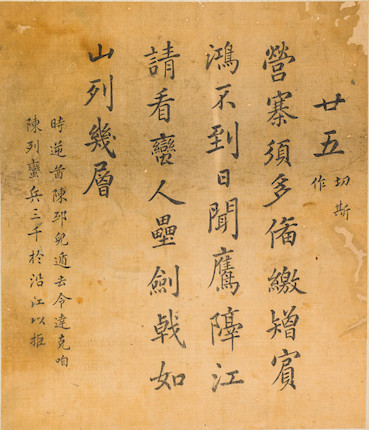 廿五
切斯
作
營寨須多俻繳矰賓
鴻不到日聞鷹隔江
請看蠻人壘劍戟如
山列幾層
時逆酋陳遁去令達克咱
陳列蠻兵三千於沿江以拒